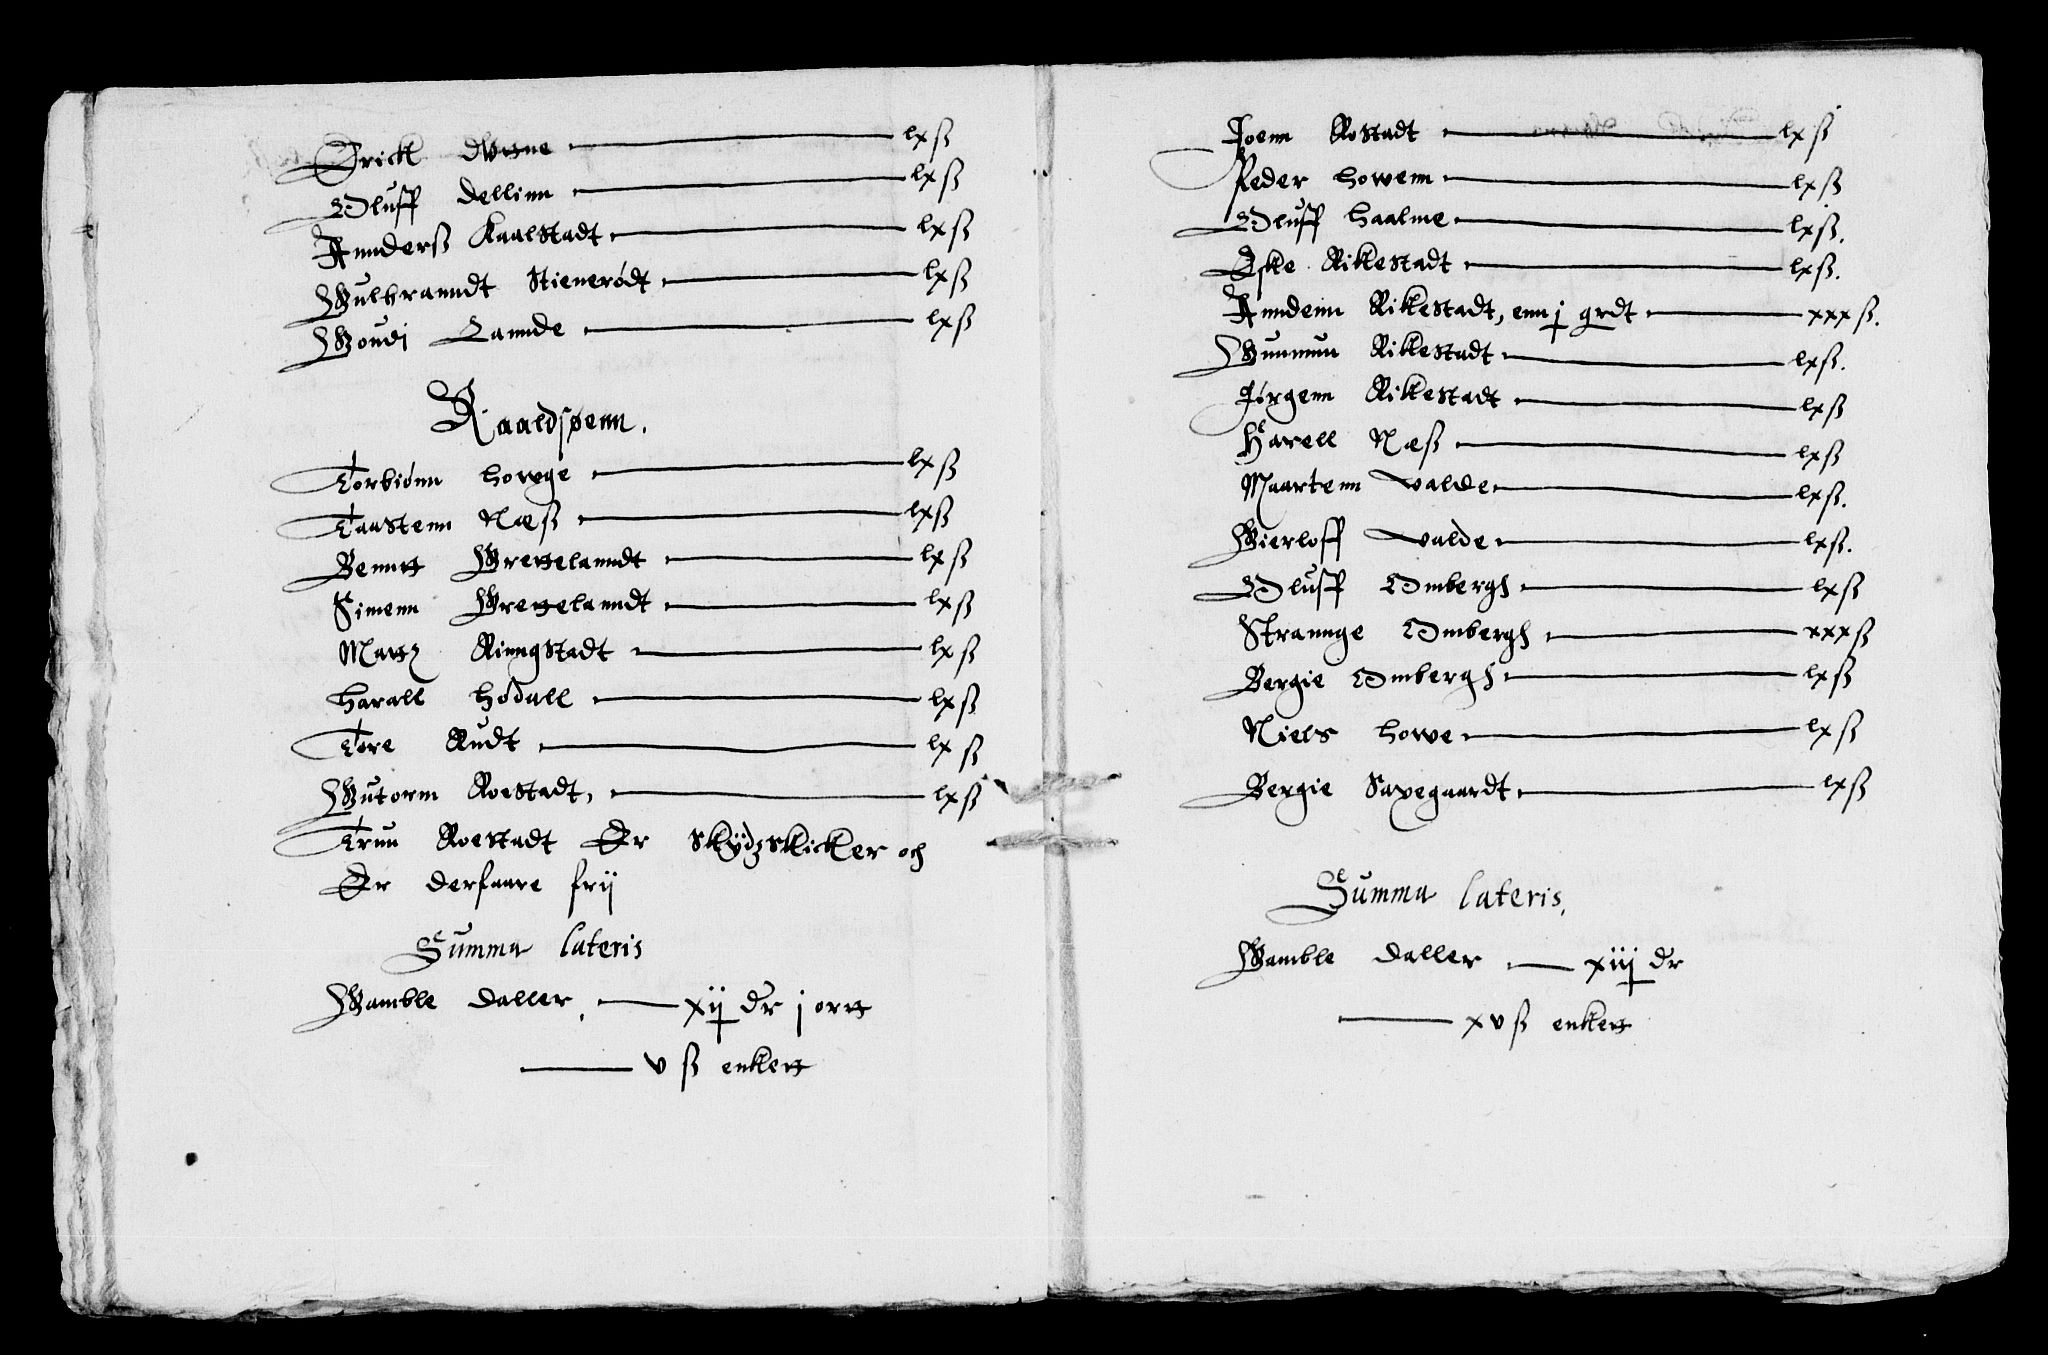 Erick dWene lxß
Oluff dellinn lxß
Annderß Kaalstadt lxß
Gulbranndt Stienerødt lxß
Goudj Lannde lxß
Raaldsøenn.
Torbiønn howge lxß
Taastenn Næß lxß
Benntt Grettelanndt lxß
Simenn Grettelanndt lxß
Matz Ringstadt lxß
harall hodall lxß
Tore Rudt lxß
Gutorm Roestadt, lxß
Trun Roestadt Er skÿdzskicker och
Er derfaare frij
Summa lateris
Gamble daller, xij dr j ortt
v ß enkett
Joenn Rostadt lxß
Peder howenn lxß
Oluff haalme lxß.
Eske Rikestadt lxß.
Anndenn Rikestadt, enn j grdt xxxß.
Gunmun Rikestadt lxß.
Jørgenn Rikestadt lxß
Harell Næß lxß
Maartenn valde lxß.
Gierloff valde lxß.
Oluff Ombergh lxß
Strannge Ombergh xxxß
Bergie Ombergh lxß
Niels howe lxß
Bergie Saxegaardt lxß
Summa lateris,
Gamble daller xiij dr
xvß enkett